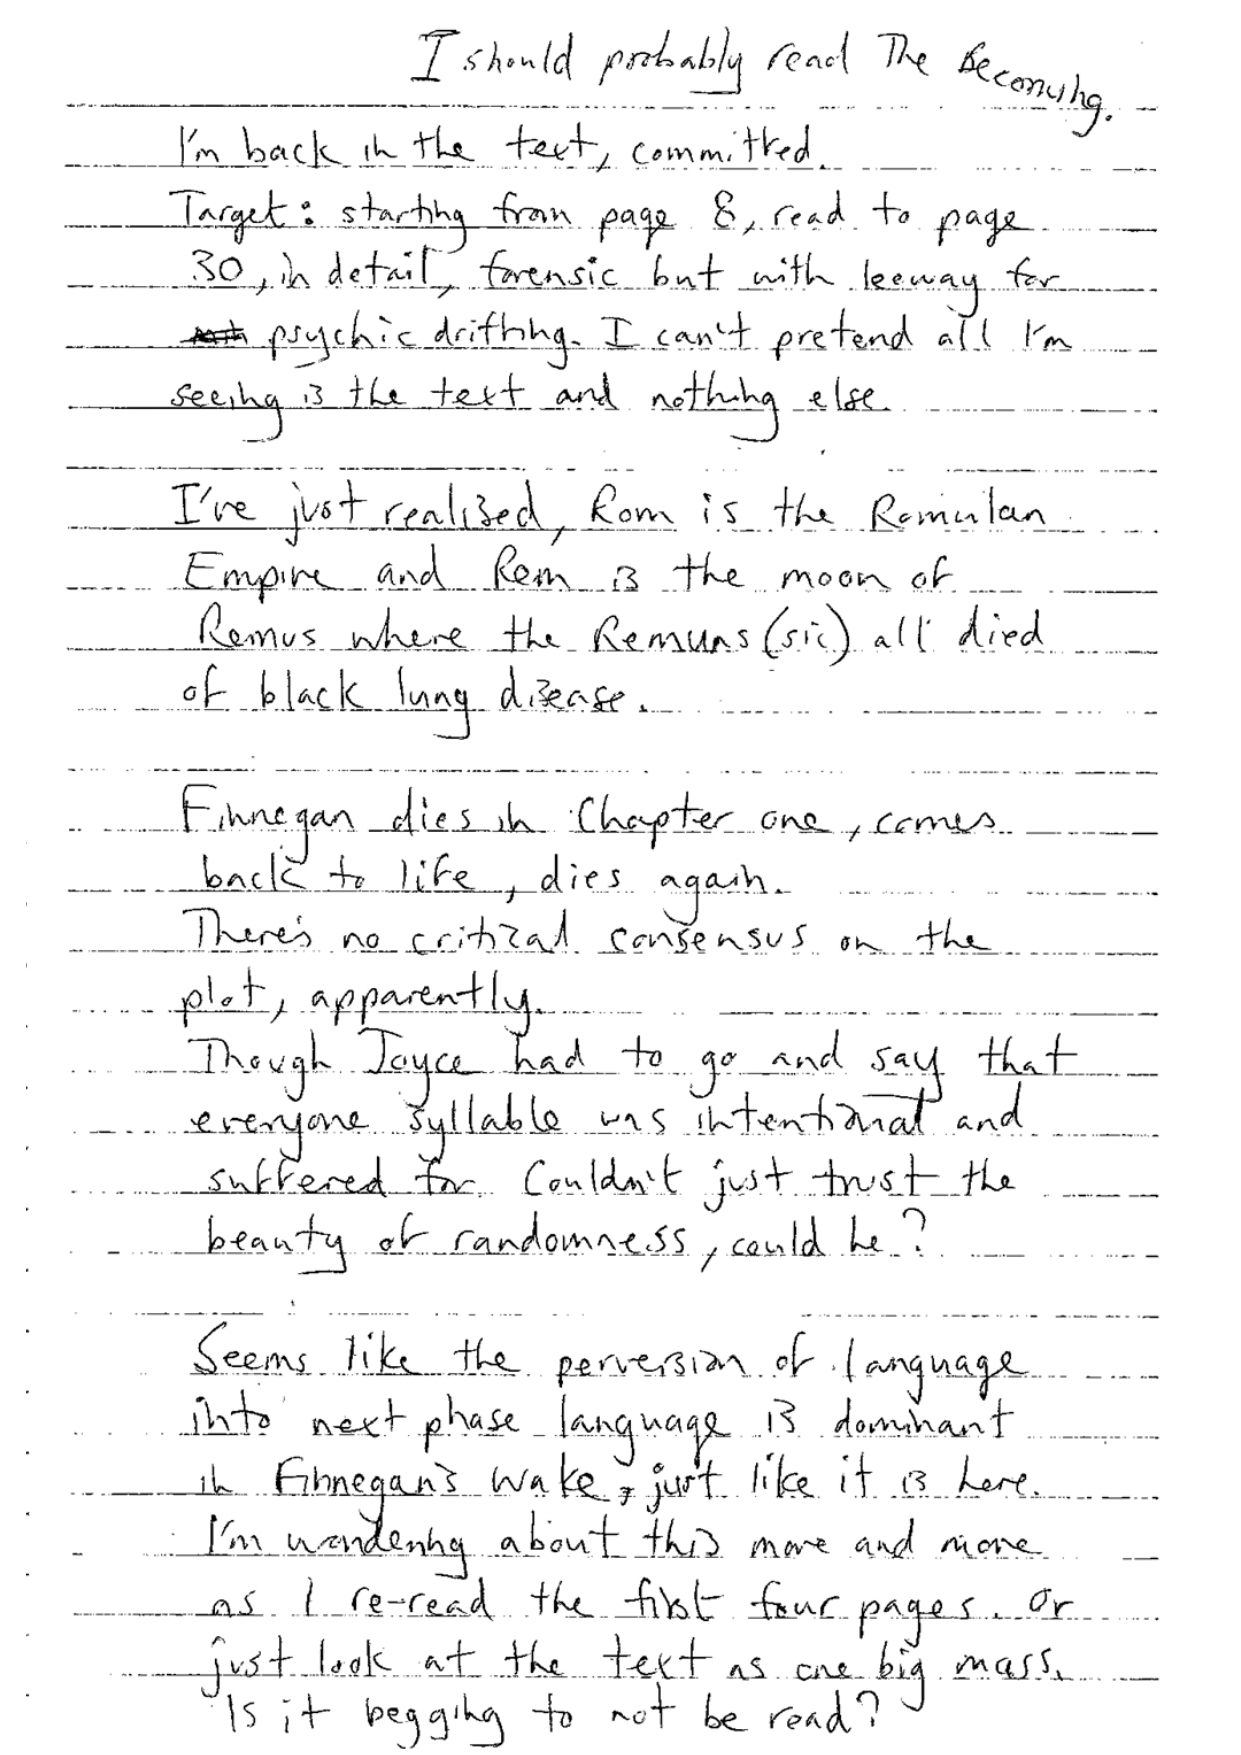 I should probably read The Becoming.
I'm back in the text, committed.
Target: starting from page 8, read to page
30, in detail, forensic but with leeway for
psychic drifting. I can't pretend all I'm
seeing is the text and nothing else.
I've just realised, Rom is the Romulan
Empire and Rem is the moon of
Remus where the Remuns (sic) all died
of black lung disease.
Finnegan dies in Chapter one, comes
back to life, dies again.
There's no critical consensus on the
plot, apparently.
Though Joyce had to go and say that
everyone syllable was intentional and
suffered for. Couldn't just trust the
beauty of randomness, could he?
Seems like the perversion of language
into next phase language is dominant
in Finnegan's Wake, just like it is here.
I'm wondering about this more and more
as I re-read the first four pages. Or
just look at the text as one big mass.
Is it begging to not be read?